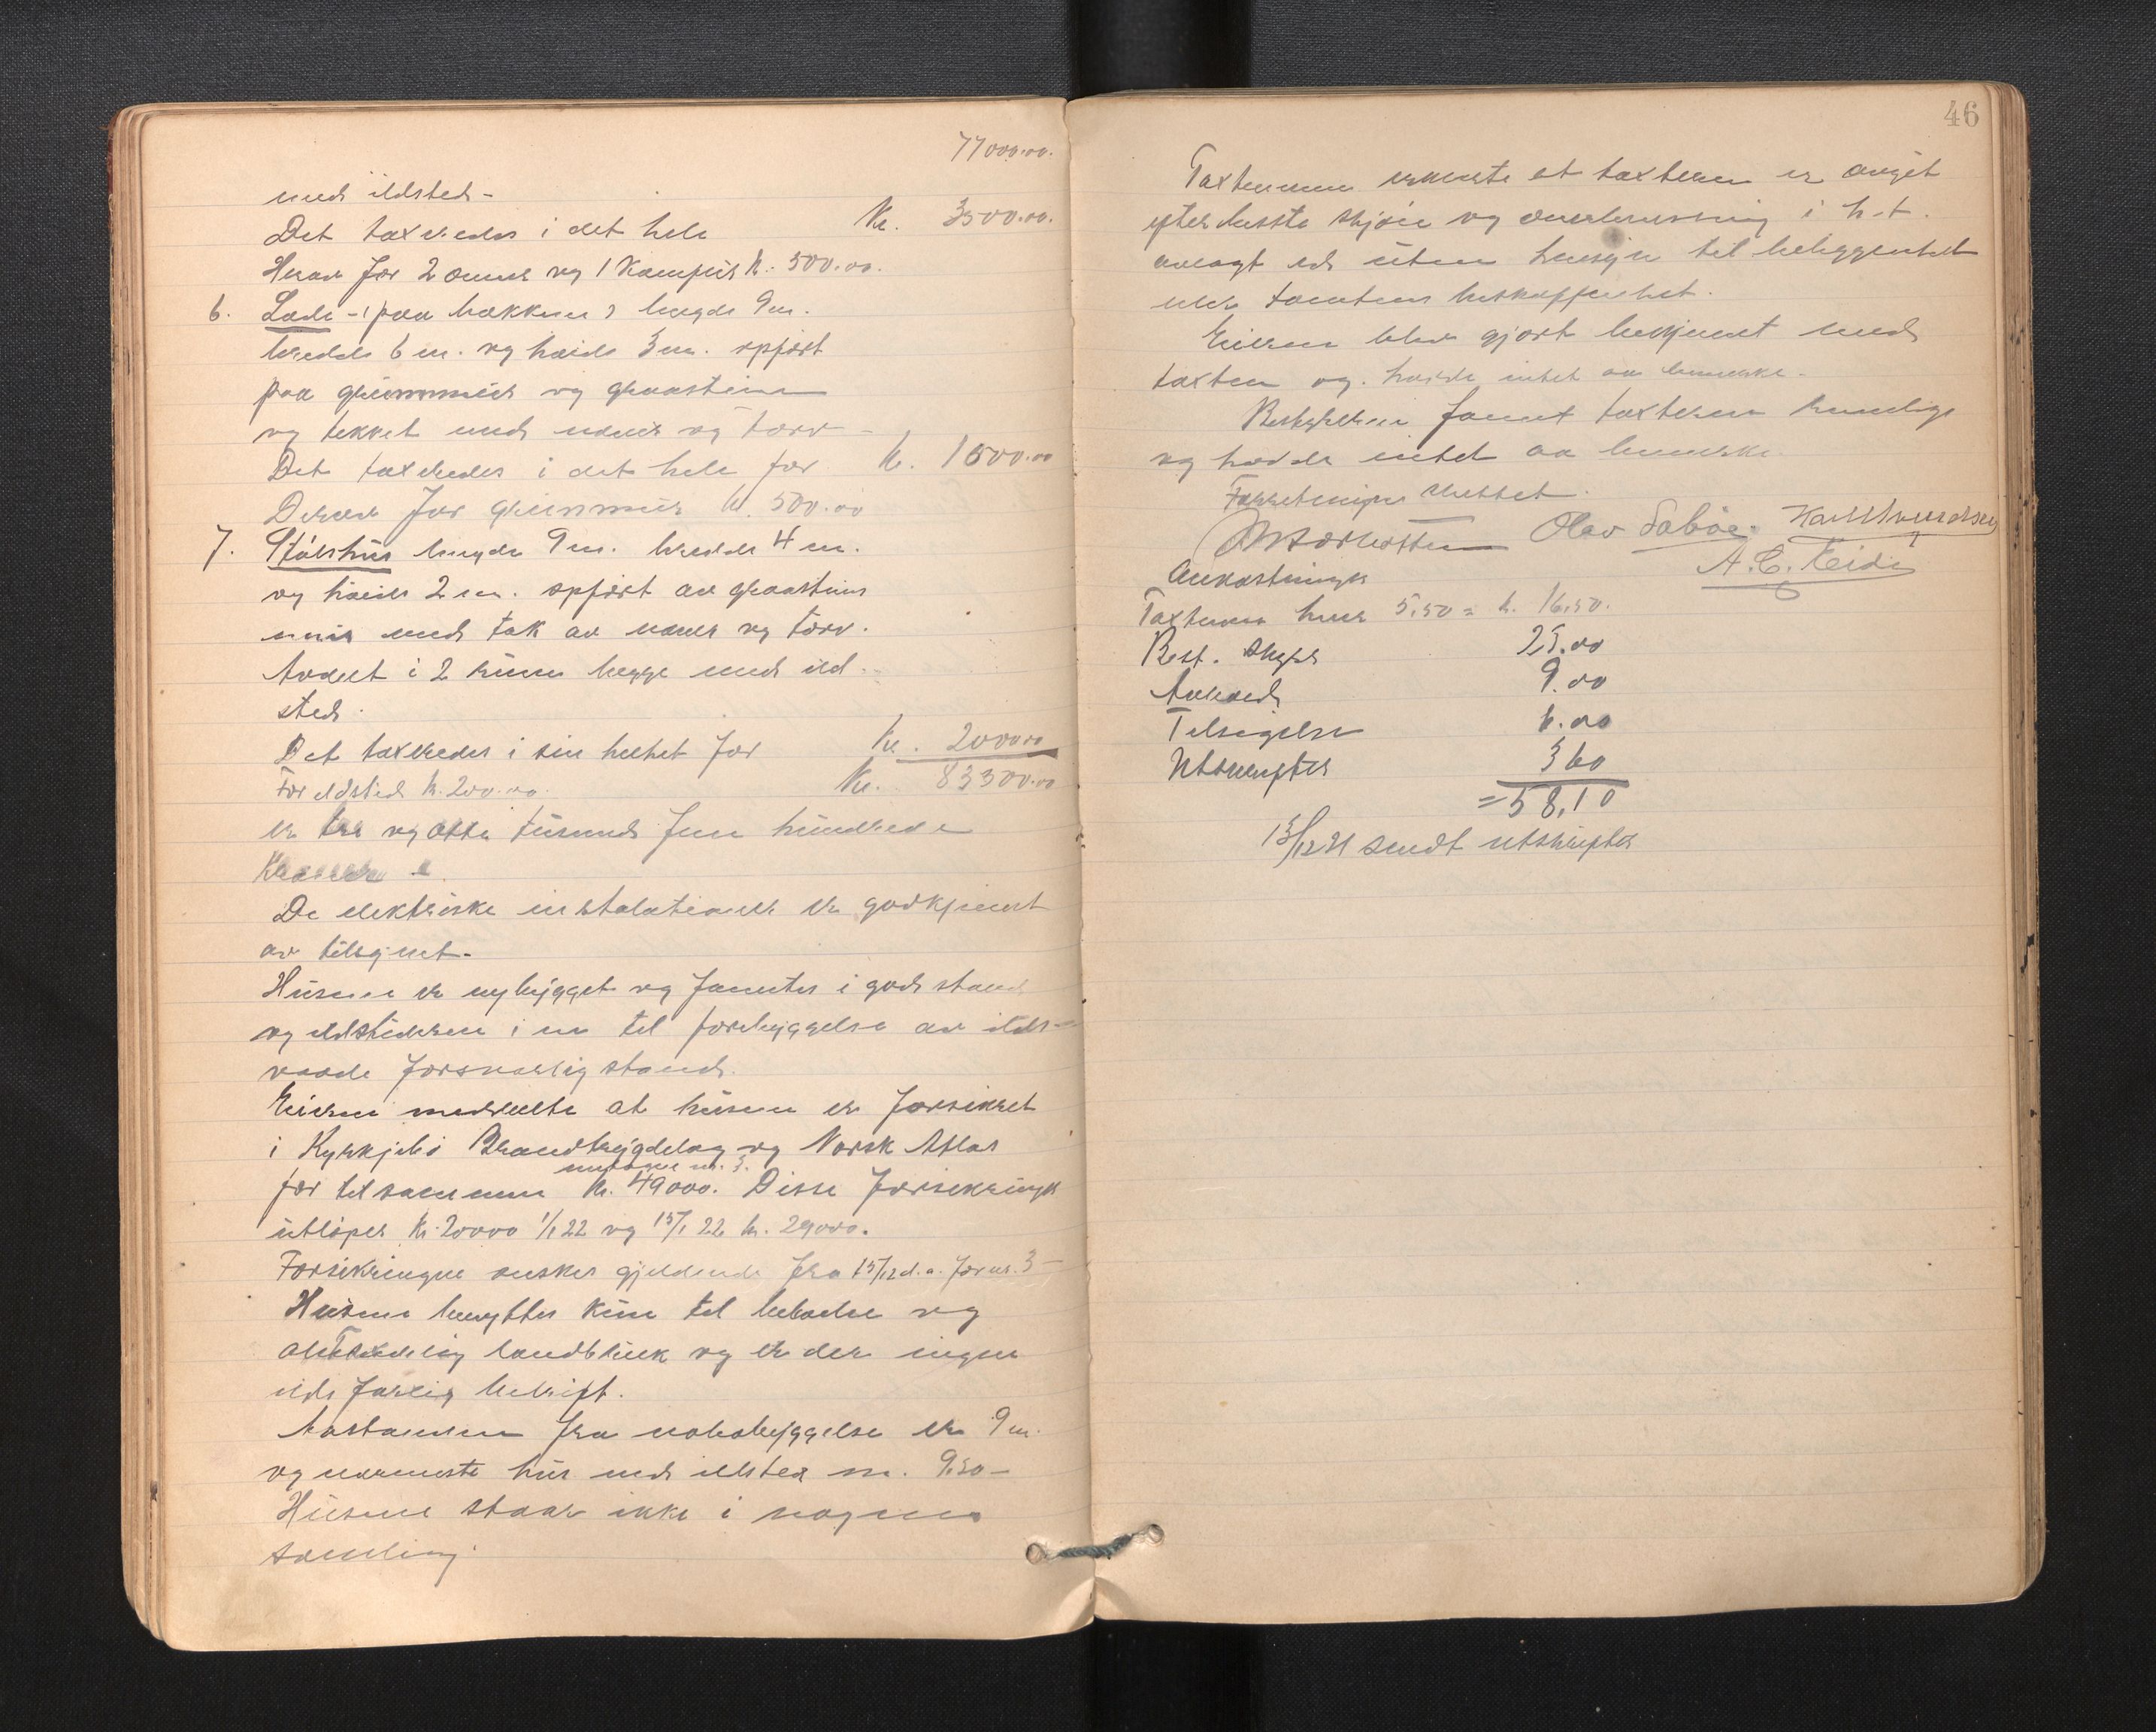 77000.00.
med ildsted -
Det taxeredes i det hele Kr. 3500.00.
Herav for 2 ovner og 1 Kompfür kr. 500.00.
6. Lade - (paa bakken) længde 9 m.
bredde 6 m. og høide 3 m. opført
paa grünnmür og graasteine
og tækket med næver og torv -
Det taxeredes i det hele for kr. 1500.00
Derav for grünnmür kr. 500.00
7. Stølshüs længde 9 m. bredde 4 m.
og høide 2 m. opført av graastens
mür med tak av næver og torv.
Avdelt i 2 rüm begge med ild-
sted.
Det taxeredes i sin helhet for kr. 2000.00
For ildsted kr. 200.00. Kr. 83500.00
er tre og otte tüsend fem hündrede
Kroner
De elektriske instalationer er godkjendt
av tilsynet.
Hüsene er nybygget og fanntes i god stand
og ildstederne i en til forebyggelse av ilds-
vaade forsvarlig stand.
Eieren meddeelte at hüsene er forsikret
i Kyrkjebø Brandtrygdelag og Norsk Atlas
undtagen nr. 3.
for tilsammen kr. 49000. Disse forsikringer
ütløper kr. 20000 1/1 22 og 15/1 22 kr. 29000.
Forsikringen ønskes gjeldende fra 15/12 d.a. for nr. 3 -
Hüsene benyttes kün til beboelse og
almindelig landbrük og er der ingen
ildsfarlig bedrift.
Avstanden fra nabobyggelse er 9 m.
og nærmeste hüs med ildsted m. 9.50 -
Hüsene staar ikke i nogen
samling.
46
Taxtmennene erklærte at taxterne er avgit
efter beste skjøn og overbevisning i h.t.
avlagt ed üten hensyn til beliggenhet
eller tomtens beskaffenhet.
Eieren blev gjort bekjendt med
taxten og havde intet aa bemerke.
Bestyreren fannt taxterne rimelige
og havde intet aa bemerke.
Forretningen sluttet.
Olav Sæbøe. Karl Amundsen
A. E. Eide
Omkostninger
Taxtmenn hver 5.50 = kr. 16.50.
Best. Skyds 25.00
Arbeid 9.00
Tilsigelse 6.00
Utskrifter 3 60
= 58.10
15/12 21 sendt utskrifter